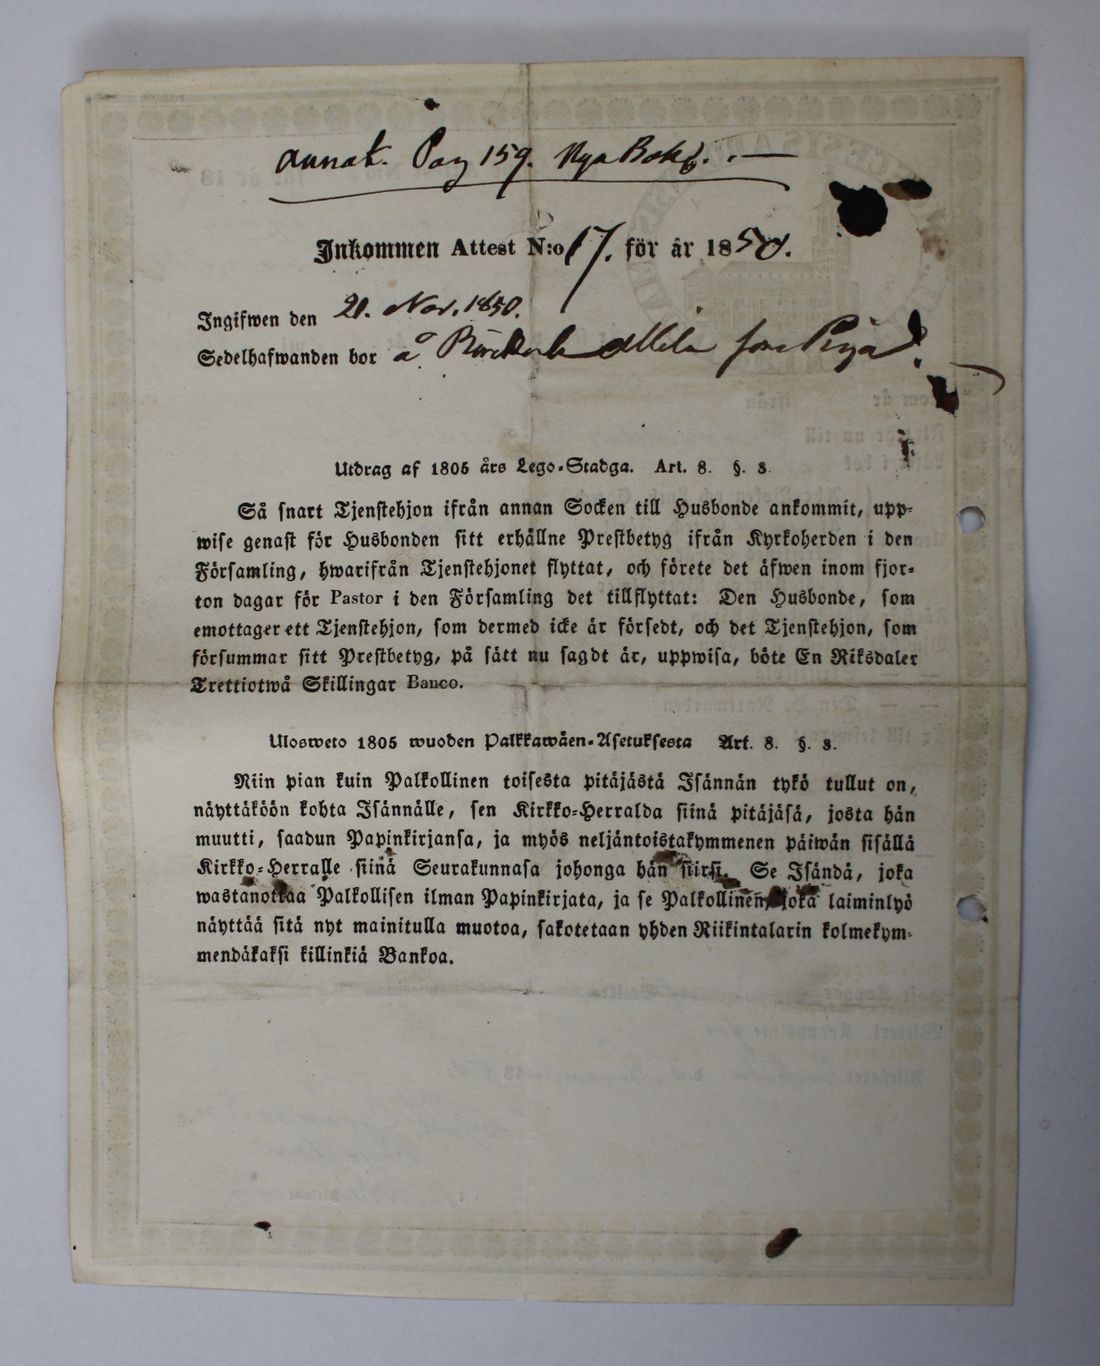 annot. Pag 159. Nya Bokf.
Inkommen Attest N:o 17. för år 1850.
Ingifwen den 21. Nov. 1850.
Sedelhafwanden bor å som Piga.
Utdrag af 1805 års Lego-Stadga. Art. 8. §. 8.
Så snart Tjenstehjon ifrån annan Socken till Husbonde ankommit, upp-
wise genast för Husbonden sitt erhållne Prestbetyg ifrån Kyrkoherden i den
Församling, hwarifrån Tjenstehjonet flyttat, och förete det äfwen inom fjor-
ton dagar för Pastor i den Församling det tillflyttat: Den Husbonde, som
emottager ett Tjenstehjon, som dermed icke är försedt, och det Tjenstehjon, som
försummar sitt Prestbetyg, på sätt nu sagdt är, uppwisa, böte En Riksdaler
Trettiotwå Skillingar Banco.
Ulosweto 1805 wuoden Palkkawäen-Asetuksesta Art. 8. §. 8.
Niin pian kuin Palkollinen toisesta pitäjästä Isännän tykö tullut on,
näyttäköön kohta Isännälle, sen Kirkko-Herralda siinä pitäjäsä, josta hän
muutti, saadun Papinkirjansa, ja myös neljäntoistakymmenen päiwän sisällä
Kirkko-Herralle siinä Seurakunnasa johonga hän siirsi. Se Isändä, joka
wastanottaa Palkollisen ilman Papinkirjata, ja se Palkollinen, joka laiminlyö
näyttää sitä nyt mainitulla muotoa, sakotetaan yhden Riikintalarin kolmekym-
mendäkaksi killinkiä Bankoa.